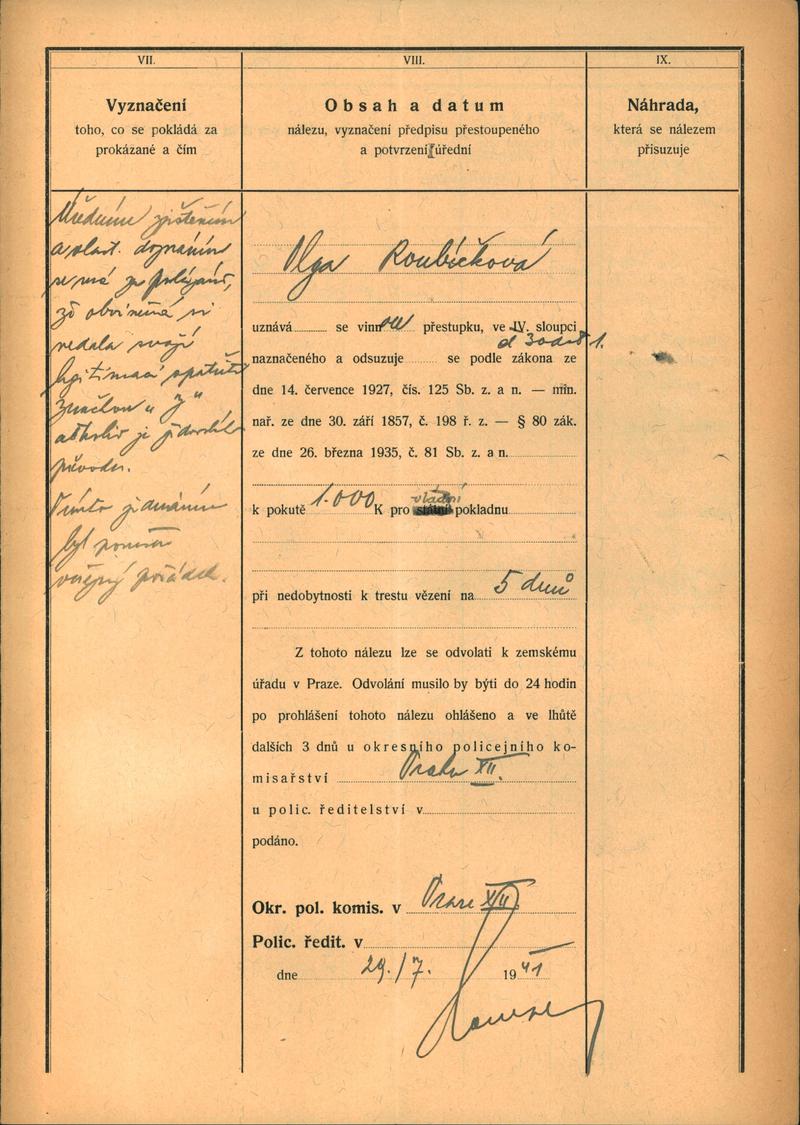 VII.
VIII.
IX.
Vyznačení
toho, co se pokládá za
prokázané a čím
Obsah a datum
nálezu, vyznačení předpisu přestoupeného
a potvrzení úřední
Náhrada,
která se nálezem
přisuzuje
Úředním zjištěním
a vlast. doznáním
se má za prokázané,
že obviněná si
nedala svojí
legitimaci opatřit
značkou „ "
ačkoliv je židovského
původu.
Tímto jednáním
byl porušen
veřejný pořádek.
Olga Roubíčková
uznává se vinnou přestupku, ve IV. sloupci
naznačeného a odsuzuje se podle zákona ze
dne 14. července 1927, čís. 125 Sb. z. a n. — min.
nař. ze dne 30. září 1857, č. 198 ř. z. — § 80 zák.
ze dne 26. března 1935, č. 81 Sb. z. a n.
vládní
k pokutě 1.000 K pro státní pokladnu
při nedobytnosti k trestu vězení na 5 dnů
Z tohoto nálezu lze se odvolati k zemskému
úřadu v Praze. Odvolání musilo by býti do 24 hodin
po prohlášení tohoto nálezu ohlášeno a ve lhůtě
dalších 3 dnů u okresního policejního ko-
misařství Praha XII.
u polic. ředitelství v
podáno.
Okr. pol. komis. v Praze XII
Polic. ředit. v
dne 29./7. 1941